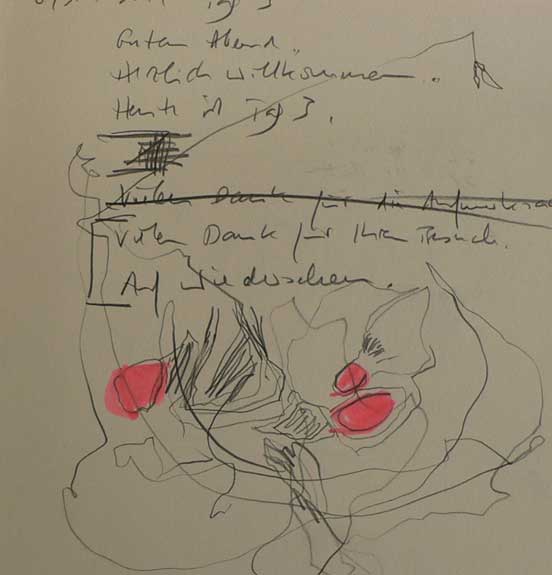 Tag 3
Guten Abend..
Herzlich willkommen..
Heute ist Tag 3.
Vielen Dank für die
Vielen Dank für Ihren Besuch.
Auf wiedersehen.